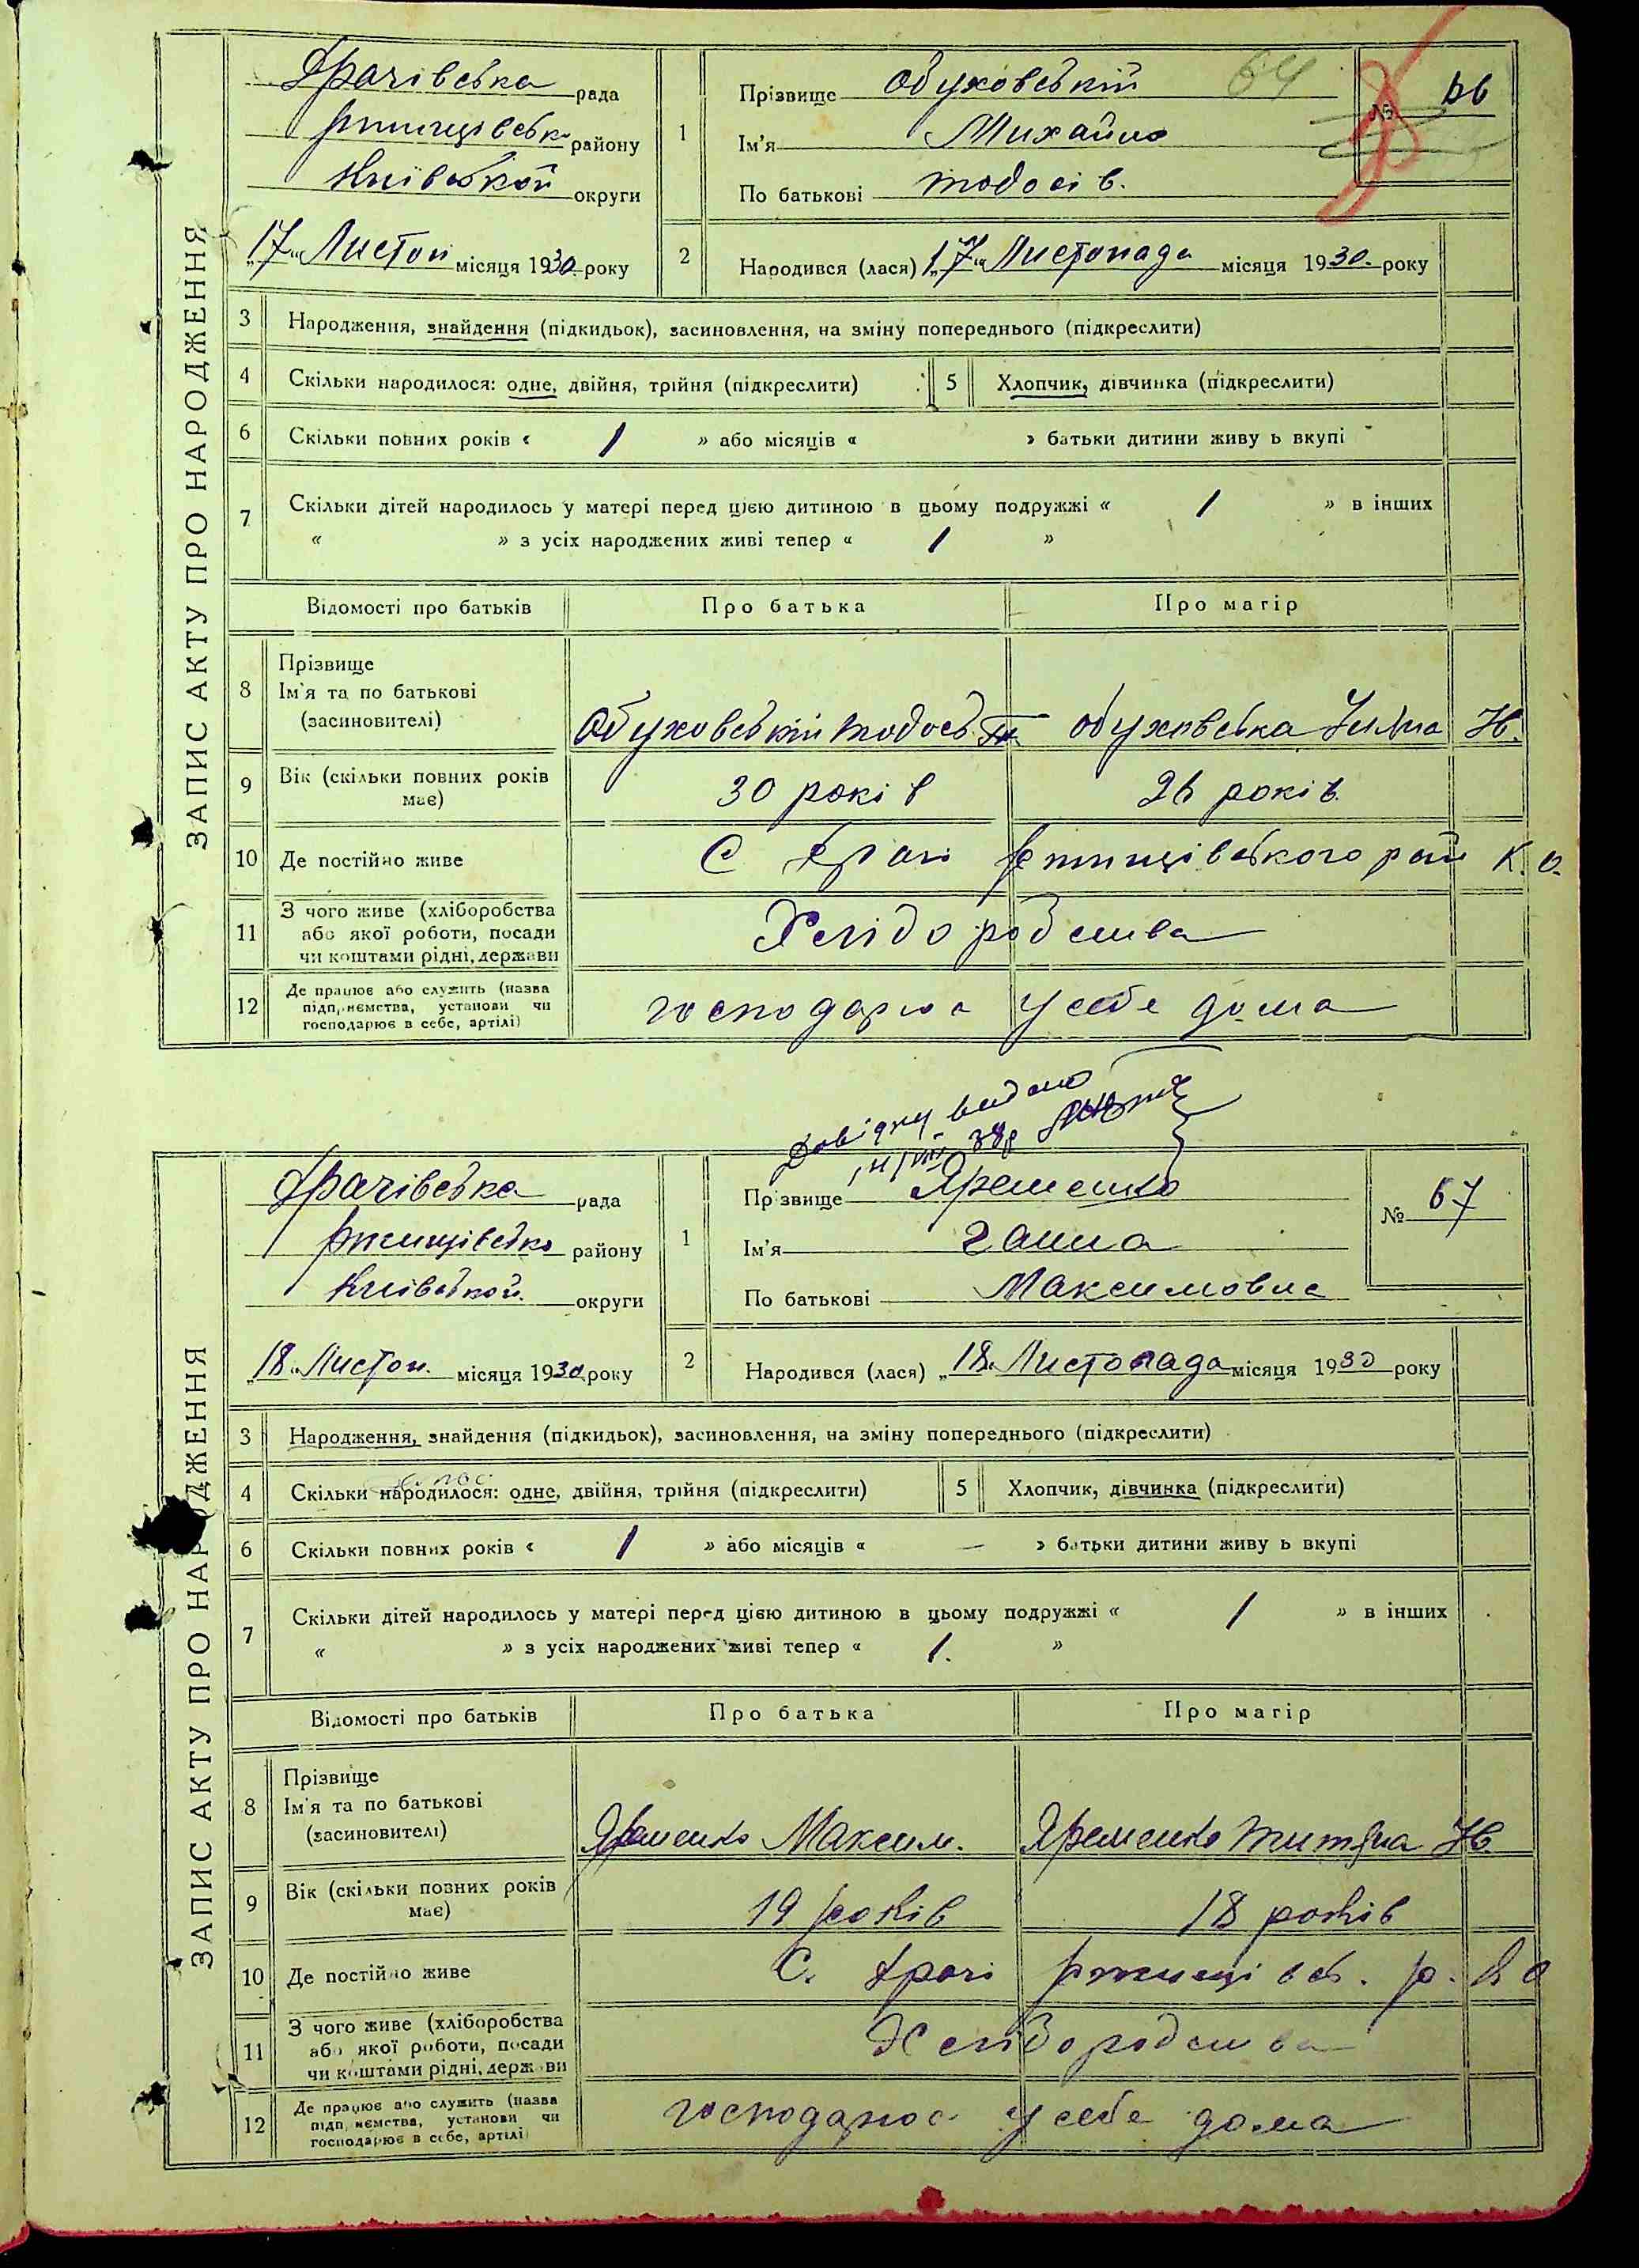 ЗАПИС АКТУ ПРО НАРОДЖЕННЯ
Драчівська рада
Ржищівськ. району
Київської округи
„17" Листоп місяця 1930 року
1
Прізвище Обуховській
64
№ 66
Ім'я Михайло
По батькові Тодосів.
2
Народився (лася) „17" Листопада місяця 1930. року
3 Народження, знайдення (підкидьок), засиновлення, на зміну попереднього (підкреслити)
4 Скільки народилося: одне, двійня, трійня (підкреслити) 5 Хлопчик, дівчинка (підкреслити)
6 Скільки повних років « 1 » або місяців « » батьки дитини живу ь вкупі
7 Скільки дітей народилось у матері перед цією дитиною в цьому подружжі « 1 » в інших
« » з усіх народжених живі тепер « 1 »
Відомості про батьків Про батька Про матір
8 Прізвище
Ім'я та по батькові
(засиновителі)
Обуховській Тодось обуховська Н.
9 Вік (скільки повних років має) 30 років 26 років
10 Де постійно живе С Драчі Ржищівського рай К. О.
11 З чого живе (хліборобства
або якої роботи, посади
чи коштами рідні, держави
Хліборобства
12 Де працює або служить (назва
підприємства, установи чи
господарює в себе, артілі)
господарює у себе дома
Довідку видано
ЗАПИС АКТУ ПРО НАРОДЖЕННЯ
Драчівська рада
Ржищівська району
Київської. округи
„18" Листоп. місяця 1930 року
1
Прізвище Яременко
№ 67
Ім'я Ганна
По батькові Максимовна
2
Народився (лася) „18" Листопада місяця 1930 року
3 Народження, знайдення (підкидьок), засиновлення, на зміну попереднього (підкреслити)
4 Скільки народилося: одне, двійня, трійня (підкреслити) 5 Хлопчик, дівчинка (підкреслити)
6 Скільки повних років « 1 » або місяців « — » батьки дитини живу ь вкупі
7 Скільки дітей народилось у матері перед цією дитиною в цьому подружжі « 1 » в інших
« » з усіх народжених живі тепер « 1. »
Відомості про батьків Про батька Про матір
8 Прізвище
Ім'я та по батькові
(засиновителі)
Яременко Максим. Яременко Титяна Н.
9 Вік (скільки повних років має) 19 років 18 років
10 Де постійно живе С. Драчі Ржищівсь. р. К О
11 З чого живе (хліборобства
або якої роботи, посади
чи коштами рідні, держави
Хліборобства
12 Де працює або служить (назва
підприємства, установи чи
господарює в себе, артілі)
господарює у себе дома